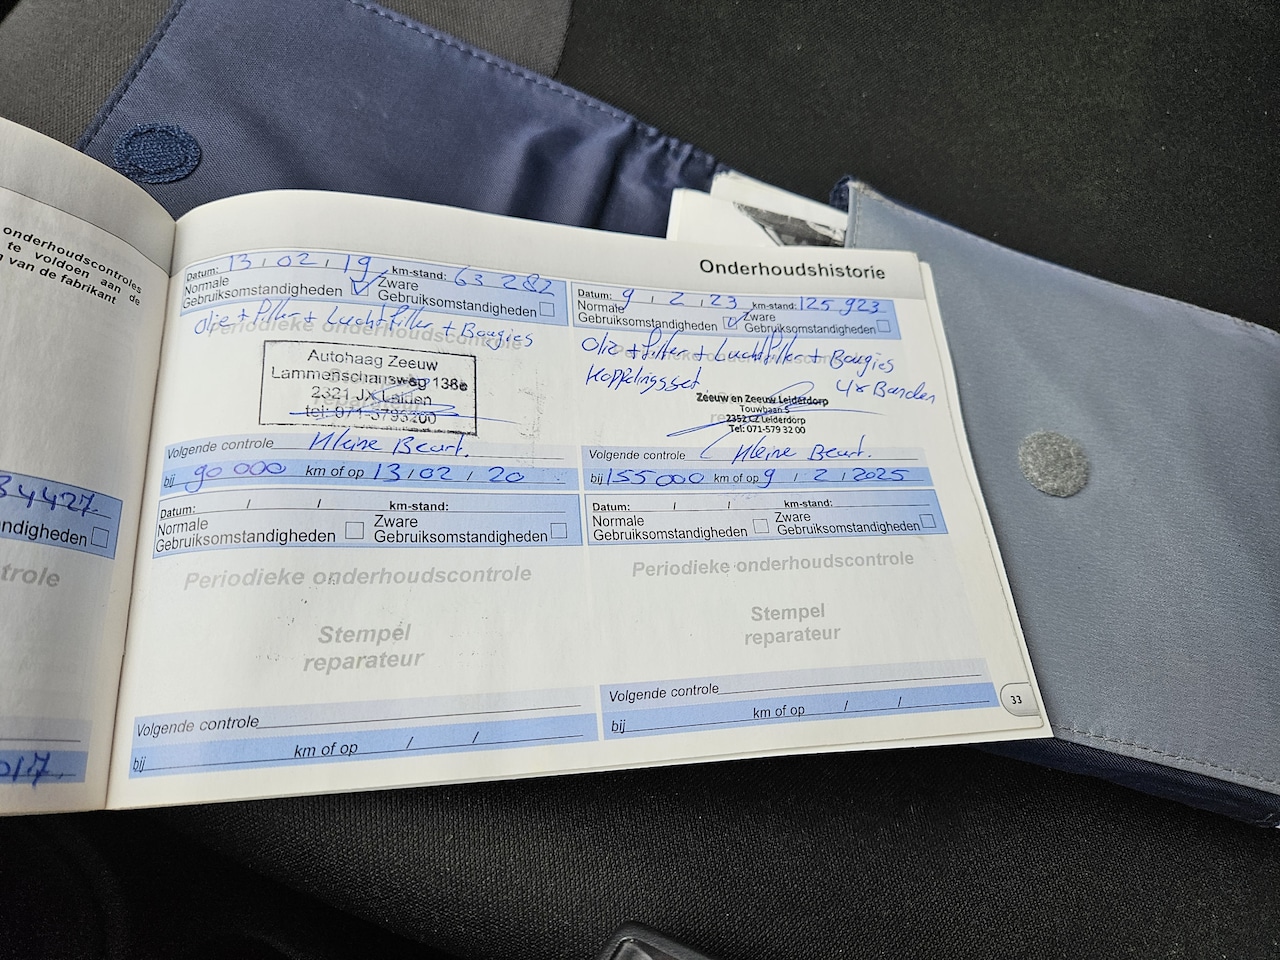 onderhoudscontroles
te voldoen aan de
van de fabrikant
34427
ndigheden
trole
017
Onderhoudshistorie
Datum: 13 / 02 / 19 km-stand: 63 282
Normale Gebruiksomstandigheden Zware Gebruiksomstandigheden
Periodieke onderhoudscontrole
Olie + filter + Luchtfilter + Bougies
Autohaag Zeeuw
Lammenschansweg 136e
2321 JX Leiden
tel: 071-5793200
Volgende controle Kleine Beurt.
bij 90 000 km of op 13 / 02 / 20
Datum: / / km-stand:
Normale Gebruiksomstandigheden Zware Gebruiksomstandigheden
Periodieke onderhoudscontrole
Stempel
reparateur
Volgende controle
bij km of op / /
Datum: 9 / 2 / 23 km-stand: 125 923
Normale Gebruiksomstandigheden Zware Gebruiksomstandigheden
Olie + filter + Luchtfilter + Bougies
Koppelingsset 4x Banden
Zeeuw en Zeeuw Leiderdorp
Touwbaan 5
2352 CZ Leiderdorp
Tel: 071-579 32 00
Volgende controle Kleine Beurt.
bij 155 000 km of op 9 / 2 / 2025
Datum: / / km-stand:
Normale Gebruiksomstandigheden Zware Gebruiksomstandigheden
Periodieke onderhoudscontrole
Stempel
reparateur
Volgende controle
bij km of op / /
33